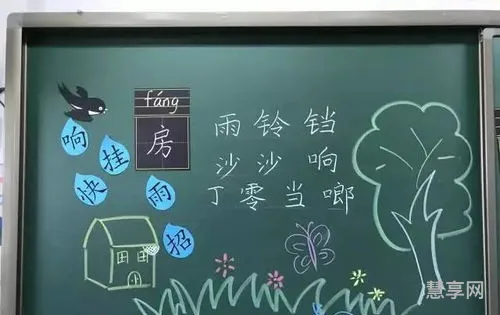 fáng
房
响
挂
快
雨
招
雨铃铛
沙沙响
丁零当啷
慧享网